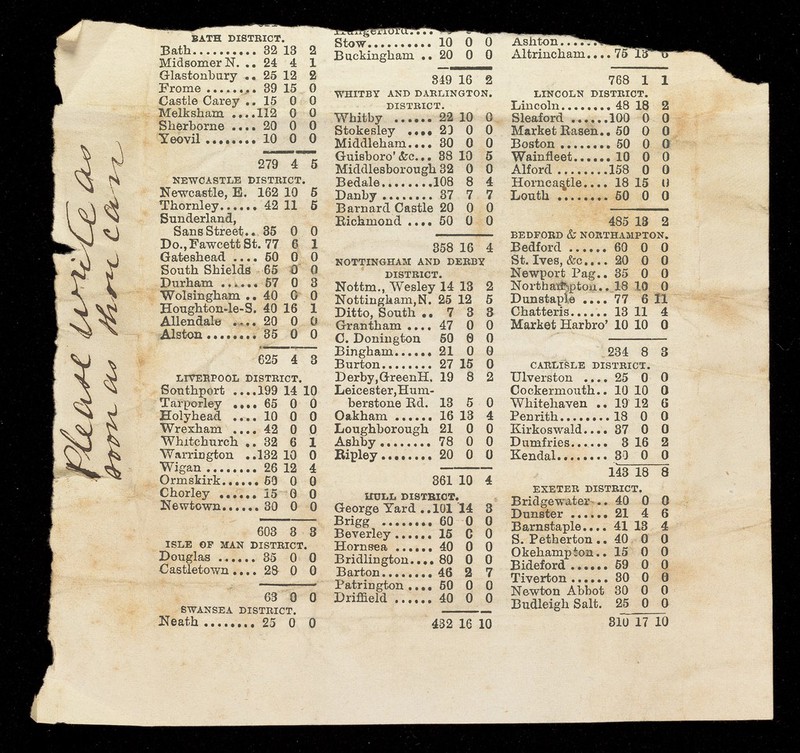 Please write as
soon as thou can
BATH DISTRICT.
Bath.......... 32 13 2
Midsomer N. .. 24 4 1
Glastonbury .. 25 12 2
Frome ........ 39 15 0
Castle Carey .. 15 0 0
Melksham ....112 0 0
Sherborne .... 20 0 0
Yeovil ........ 10 0 0
279 4 5
NEWCASTLE DISTRICT.
Newcastle, E. 162 10 5
Thornley...... 42 11 5
Sunderland,
Sans Street.. 35 0 0
Do., Fawcett St. 77 6 1
Gateshead .... 50 0 0
South Shields 65 0 0
Durham ...... 57 0 3
Wolsingham .. 40 0 0
Houghton-le-S. 40 16 1
Allendale .... 20 0 0
Alston ........ 35 0 0
625 4 3
LIVERPOOL DISTRICT.
Southport ....199 14 10
Tarporley .... 65 0 0
Holyhead .... 10 0 0
Wrexham .... 42 0 0
Whitchurch .. 32 6 1
Warrington ..132 10 0
Wigan ........ 26 12 4
Ormskirk...... 50 0 0
Chorley ...... 15 0 0
Newtown...... 30 0 0
603 3 3
ISLE OF MAN DISTRICT.
Douglas ...... 35 0 0
Castletown .... 28 0 0
63 0 0
SWANSEA DISTRICT.
Neath ........ 25 0 0
Stow.......... 10 0 0
Buckingham .. 20 0 0
849 16 2
WHITBY AND DARLINGTON.
DISTRICT.
Whitby ...... 22 10 0
Stokesley .... 20 0 0
Middleham.... 30 0 0
Guisboro' &c... 38 10 5
Middlesborough 32 0 0
Bedale........108 8 4
Danby ........ 37 7 7
Barnard Castle 20 0 0
Richmond .... 50 0 0
358 16 4
NOTTINGHAM AND DERBY
DISTRICT.
Nottm., Wesley 14 13 2
Nottingham, N. 25 12 5
Ditto, South .. 7 3 3
Grantham .... 47 0 0
C. Donington 50 0 0
Bingham...... 21 0 0
Burton........ 27 15 0
Derby, Green H. 19 8 2
Leicester, Hum-
berstone Rd. 13 5 0
Oakham ...... 16 13 4
Loughborough 21 0 0
Ashby ........ 78 0 0
Ripley ........ 20 0 0
361 10 4
HULL DISTRICT.
George Yard ..101 14 3
Brigg ........ 60 0 0
Beverley ...... 15 0 0
Hornsea ...... 40 0 0
Bridlington.... 80 0 0
Barton........ 46 2 7
Patrington .... 50 0 0
Driffield ...... 40 0 0
432 16 10
Ashton......
Altrincham.... 75 13
768 1 1
LINCOLN DISTRICT.
Lincoln........ 48 18 2
Sleaford ......100 0 0
Market Rasen.. 50 0 0
Boston ........ 50 0 0
Wainfleet...... 10 0 0
Alford ........158 0 0
Horncastle.... 18 15 0
Louth ........ 50 0 0
485 13 2
BEDFORD & NORTHAMPTON.
Bedford ...... 60 0 0
St. Ives, &c.... 20 0 0
Newport Pag.. 35 0 0
Northampton.. 18 10 0
Dunstaple .... 77 6 11
Chatteris...... 13 11 4
Market Harbro' 10 10 0
234 8 3
CARLISLE DISTRICT.
Ulverston .... 25 0 0
Cockermouth.. 10 10 0
Whitehaven .. 19 12 6
Penrith........ 18 0 0
Kirkoswald.... 37 0 0
Dumfries...... 3 16 2
Kendal........ 30 0 0
143 18 8
EXETER DISTRICT.
Bridgewater .. 40 0 0
Dunster ...... 21 4 6
Barnstaple.... 41 13 4
S. Petherton .. 40 0 0
Okehampton.. 15 0 0
Bideford ...... 59 0 0
Tiverton ...... 30 0 0
Newton Abbot 30 0 0
Budleigh Salt. 25 0 0
310 17 10